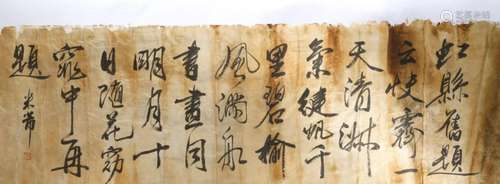 虹縣舊題
云快霽一
天清淑
氣健帆千
里碧榆
風滿船
書畫同
明月十
日随花窈
窕中再
題
米芾